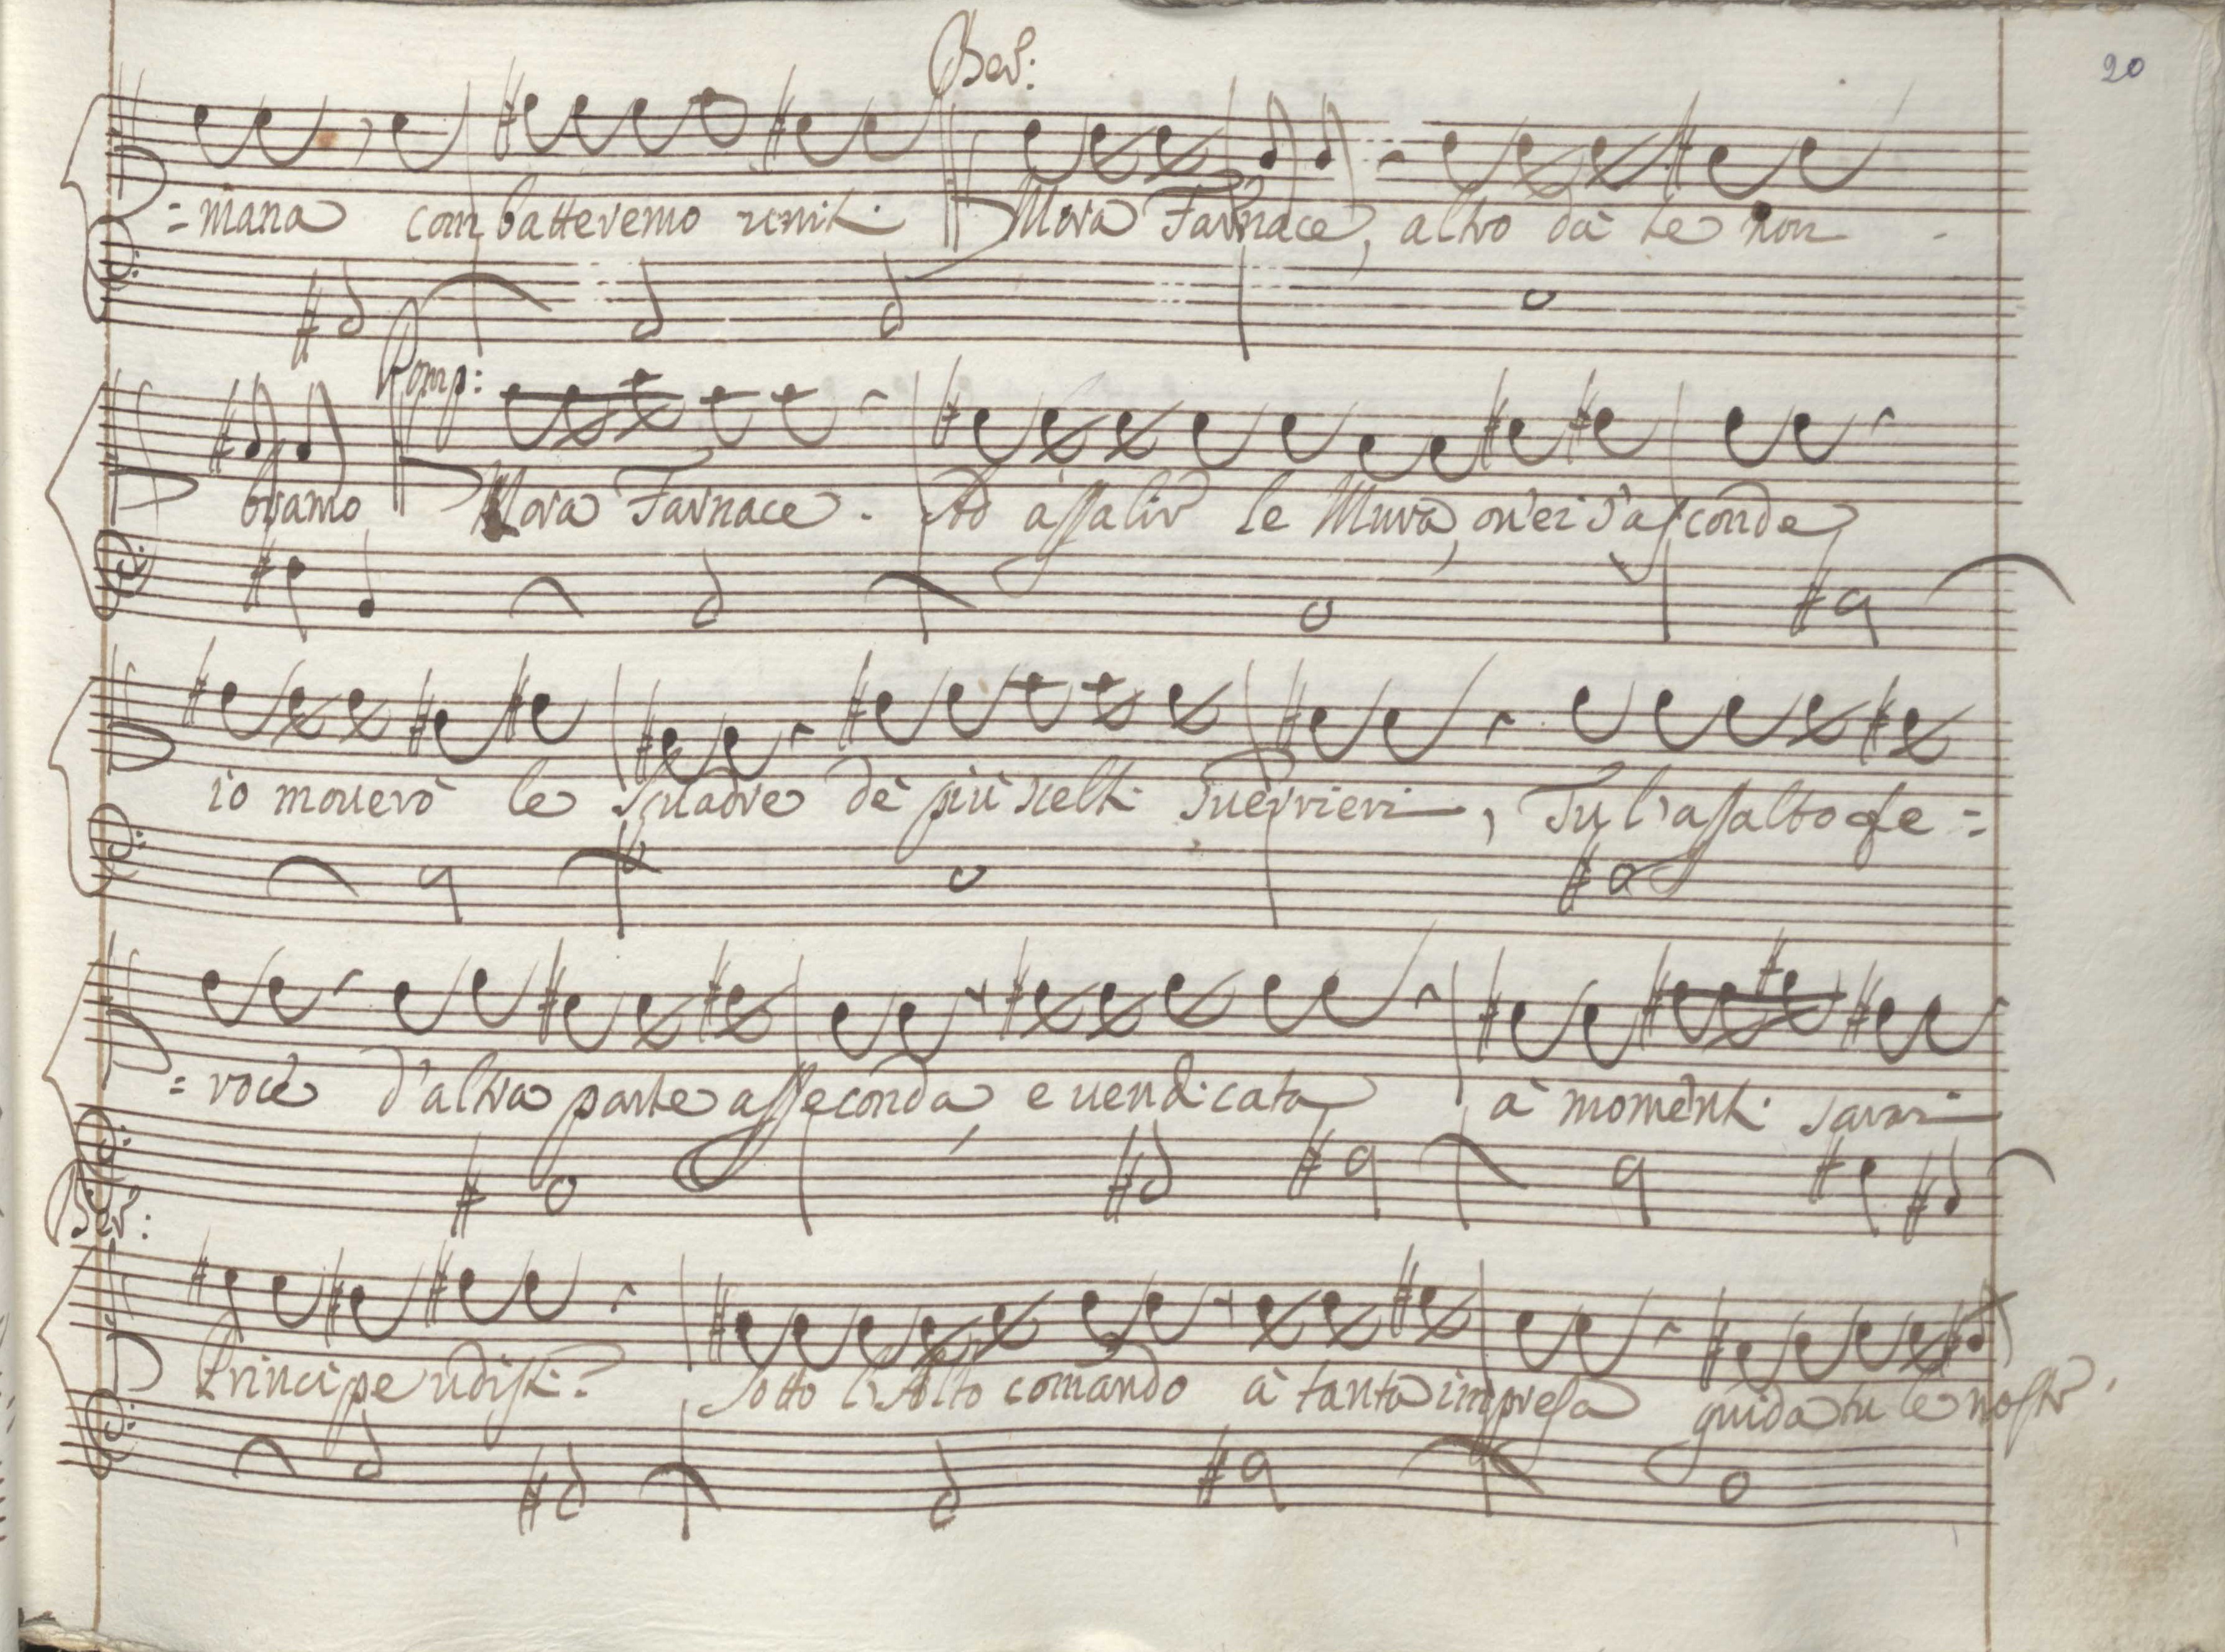 20
Ber:
=mana combatteremo uniti. Mora Farnace, altro da te non
Pomp:
bramo Mora Farnace. Ad assalir le Mura, ou'ei s'asconde,
io mouerò le squadre de più scelti Guerrieri, Tu l'assalto fe=
=roce d'altra parte asseconda e uendicata à momenti sarai
Ber:
Principe udisti? Sotto l'Alto comando à tanta impresa guida tu le nostr'